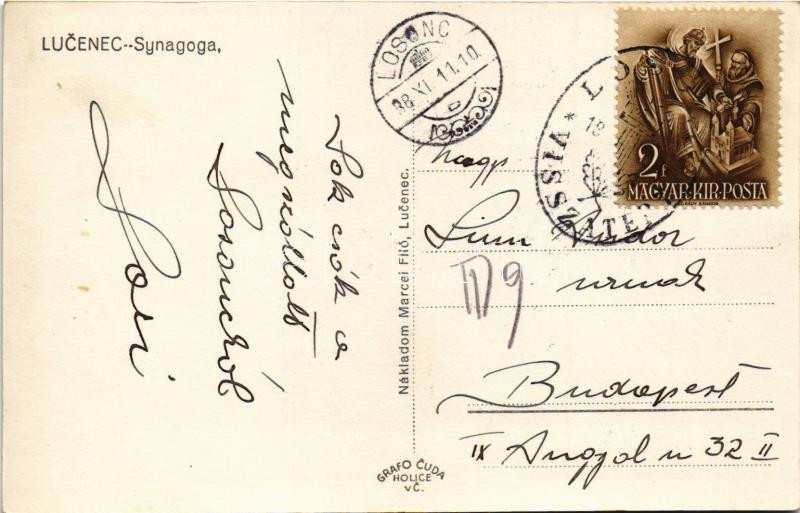 LUČENEC--Synagoga,
Sok csók a
megszállott
Losoncról
Sori
Nákladom Marcel Filó, Lučenec.
GRAFO ČUDA
HOLICE
v Č.
LOSONC
38 XI. 11.10.
VISSZATÉR
2f
MAGYAR·KIR·POSTA
Nagys
Nándor
urnak
Budapest
IX Angyal u 32 II